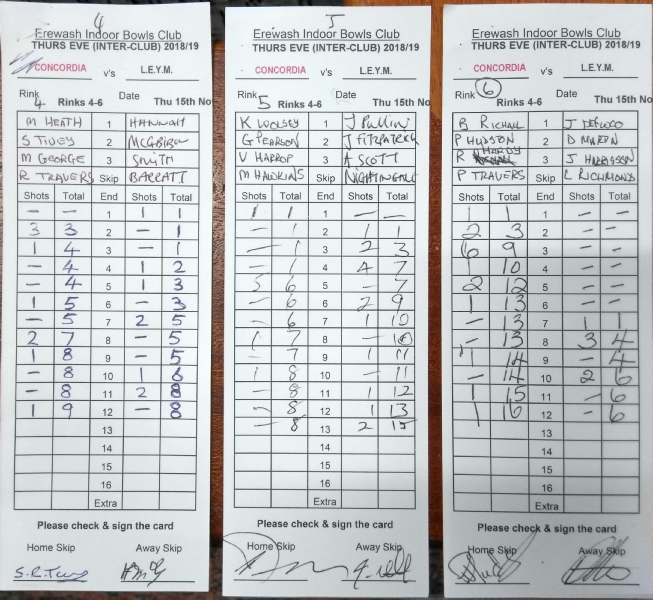 4
Erewash Indoor Bowls Club
THURS EVE (INTER-CLUB) 2018/19
CONCORDIA v's L.E.Y.M.
Rink 4 Rinks 4-6 Date Thu 15th No
M HEATH 1 HANNAH
S TIVEY 2 McGIBBON
M GEORGE 3 SMITH
R TRAVERS Skip BARRATT
Shots Total End Shots Total
— — 1 1 1
3 3 2 — 1
1 4 3 — 1
— 4 4 1 2
— 4 5 1 3
1 5 6 — 3
— 5 7 2 5
2 7 8 — 5
1 8 9 — 5
— 8 10 1 6
— 8 11 2 8
1 9 12 — 8
13
14
15
16
Extra
Please check & sign the card
Home Skip Away Skip
5
Erewash Indoor Bowls Club
THURS EVE (INTER-CLUB) 2018/19
CONCORDIA v's L.E.Y.M.
Rink 5 Rinks 4-6 Date Thu 15th No
K WOLSEY 1 J Pullin
G PEARSON 2 J FITZPATRICK
V HARROP 3 A SCOTT
M HAWKINS Skip NIGHTINGALE
Shots Total End Shots Total
1 1 1 — —
— 1 2 1 1
— 1 3 2 3
— 1 4 4 7
5 6 5 — 7
— 6 6 2 9
— 6 7 1 10
1 7 8 — 10
— 7 9 1 11
1 8 10 — 11
— 8 11 1 12
— 8 12 1 13
— 8 13 2 15
14
15
16
Extra
Please check & sign the card
Home Skip Away Skip
6
Erewash Indoor Bowls Club
THURS EVE (INTER-CLUB) 2018/19
CONCORDIA v's L.E.Y.M.
Rink Rinks 4-6 Date Thu 15th No
B RICHAIL 1 J
P HUDSON 2 D MARTIN
R HARDY 3 J HARRISSON
P TRAVERS Skip L RICHMOND
Shots Total End Shots Total
1 1 1 — —
2 3 2 — —
6 9 3 — —
1 10 4 — —
2 12 5 — —
1 13 6 — —
— 13 7 1 1
— 13 8 3 4
1 14 9 — 4
— 14 10 2 6
1 15 11 — 6
1 16 12 — 6
13
14
15
16
Extra
Please check & sign the card
Home Skip Away Skip